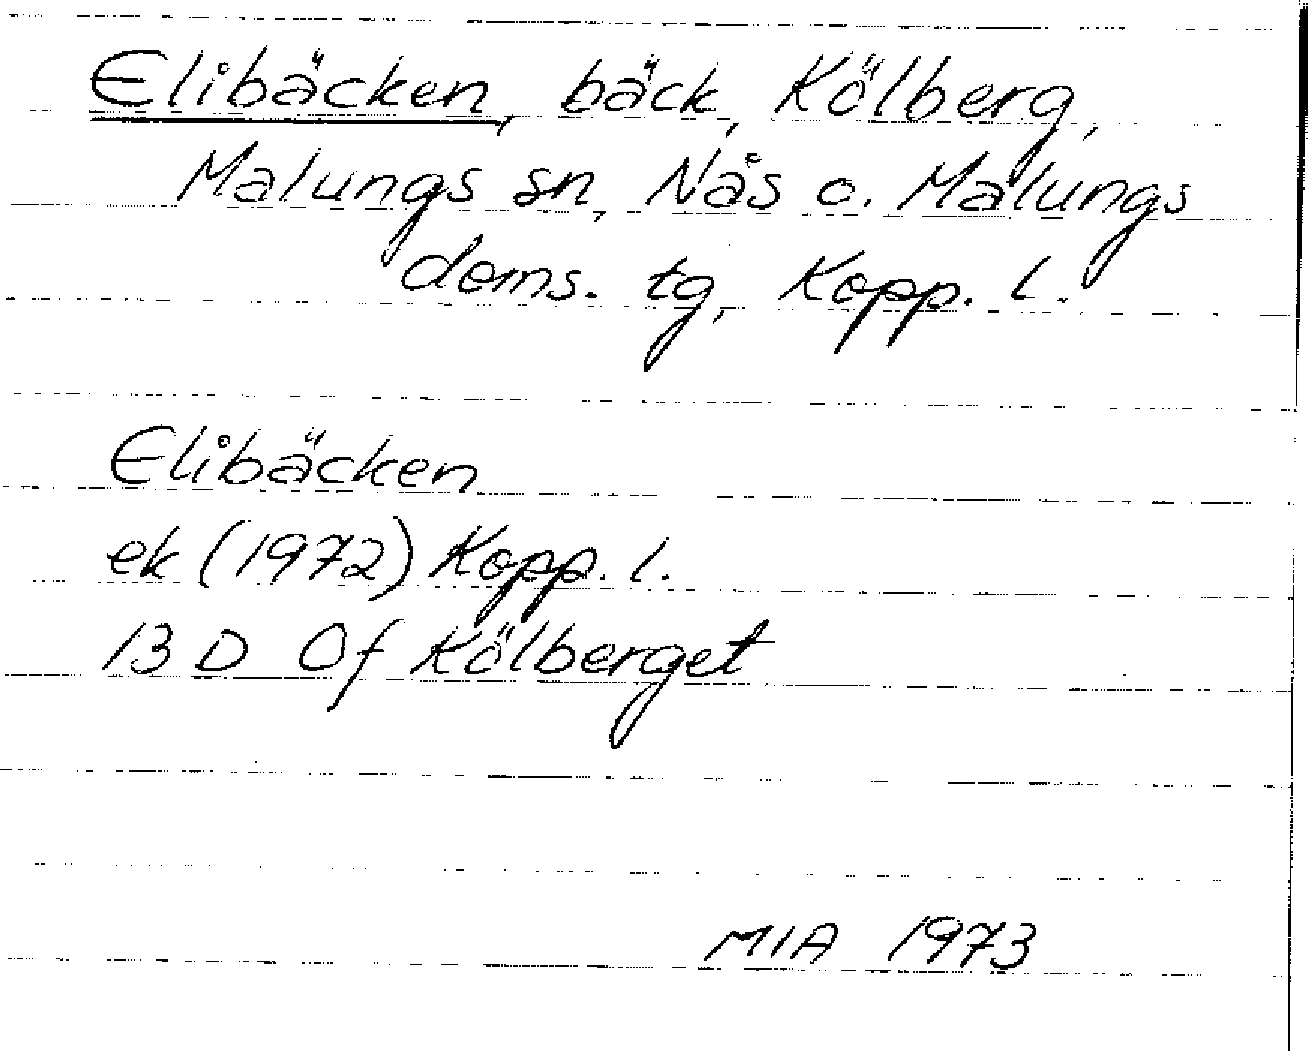 Elibäcken, bäck, Kölberg,
Malungs sn, Nås o. Malungs
doms. tg, Kopp. l.
Elibäcken
ek (1972) Kopp. l.
13 D 0f Kölberget
MIA 1973